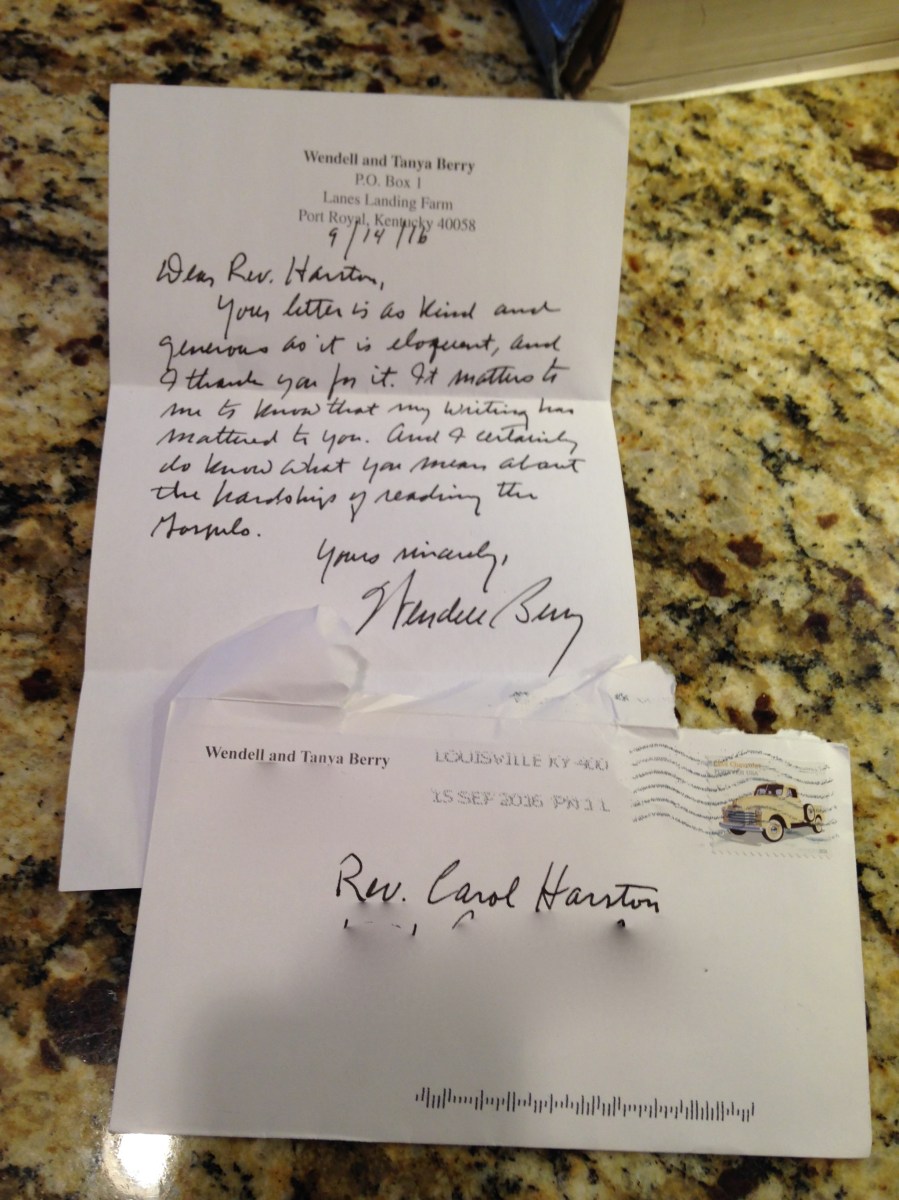 Wendell and Tanya Berry
P.O. Box 1
Lanes Landing Farm
Port Royal, Kentucky 40058
9/14/16
Dear Rev. Harston,
Your letter is as kind and
generous as it is eloquent, and
I thank you for it. It matters to
me to know that my writing has
mattered to you. And I certainly
do know what you mean about
the hardships of reading the
Gospels.
Yours sincerely,
Wendell Berry
Wendell and Tanya Berry
LOUISVILLE KY 400
15 SEP 2016 PM 1 L
Rev. Carol Harston